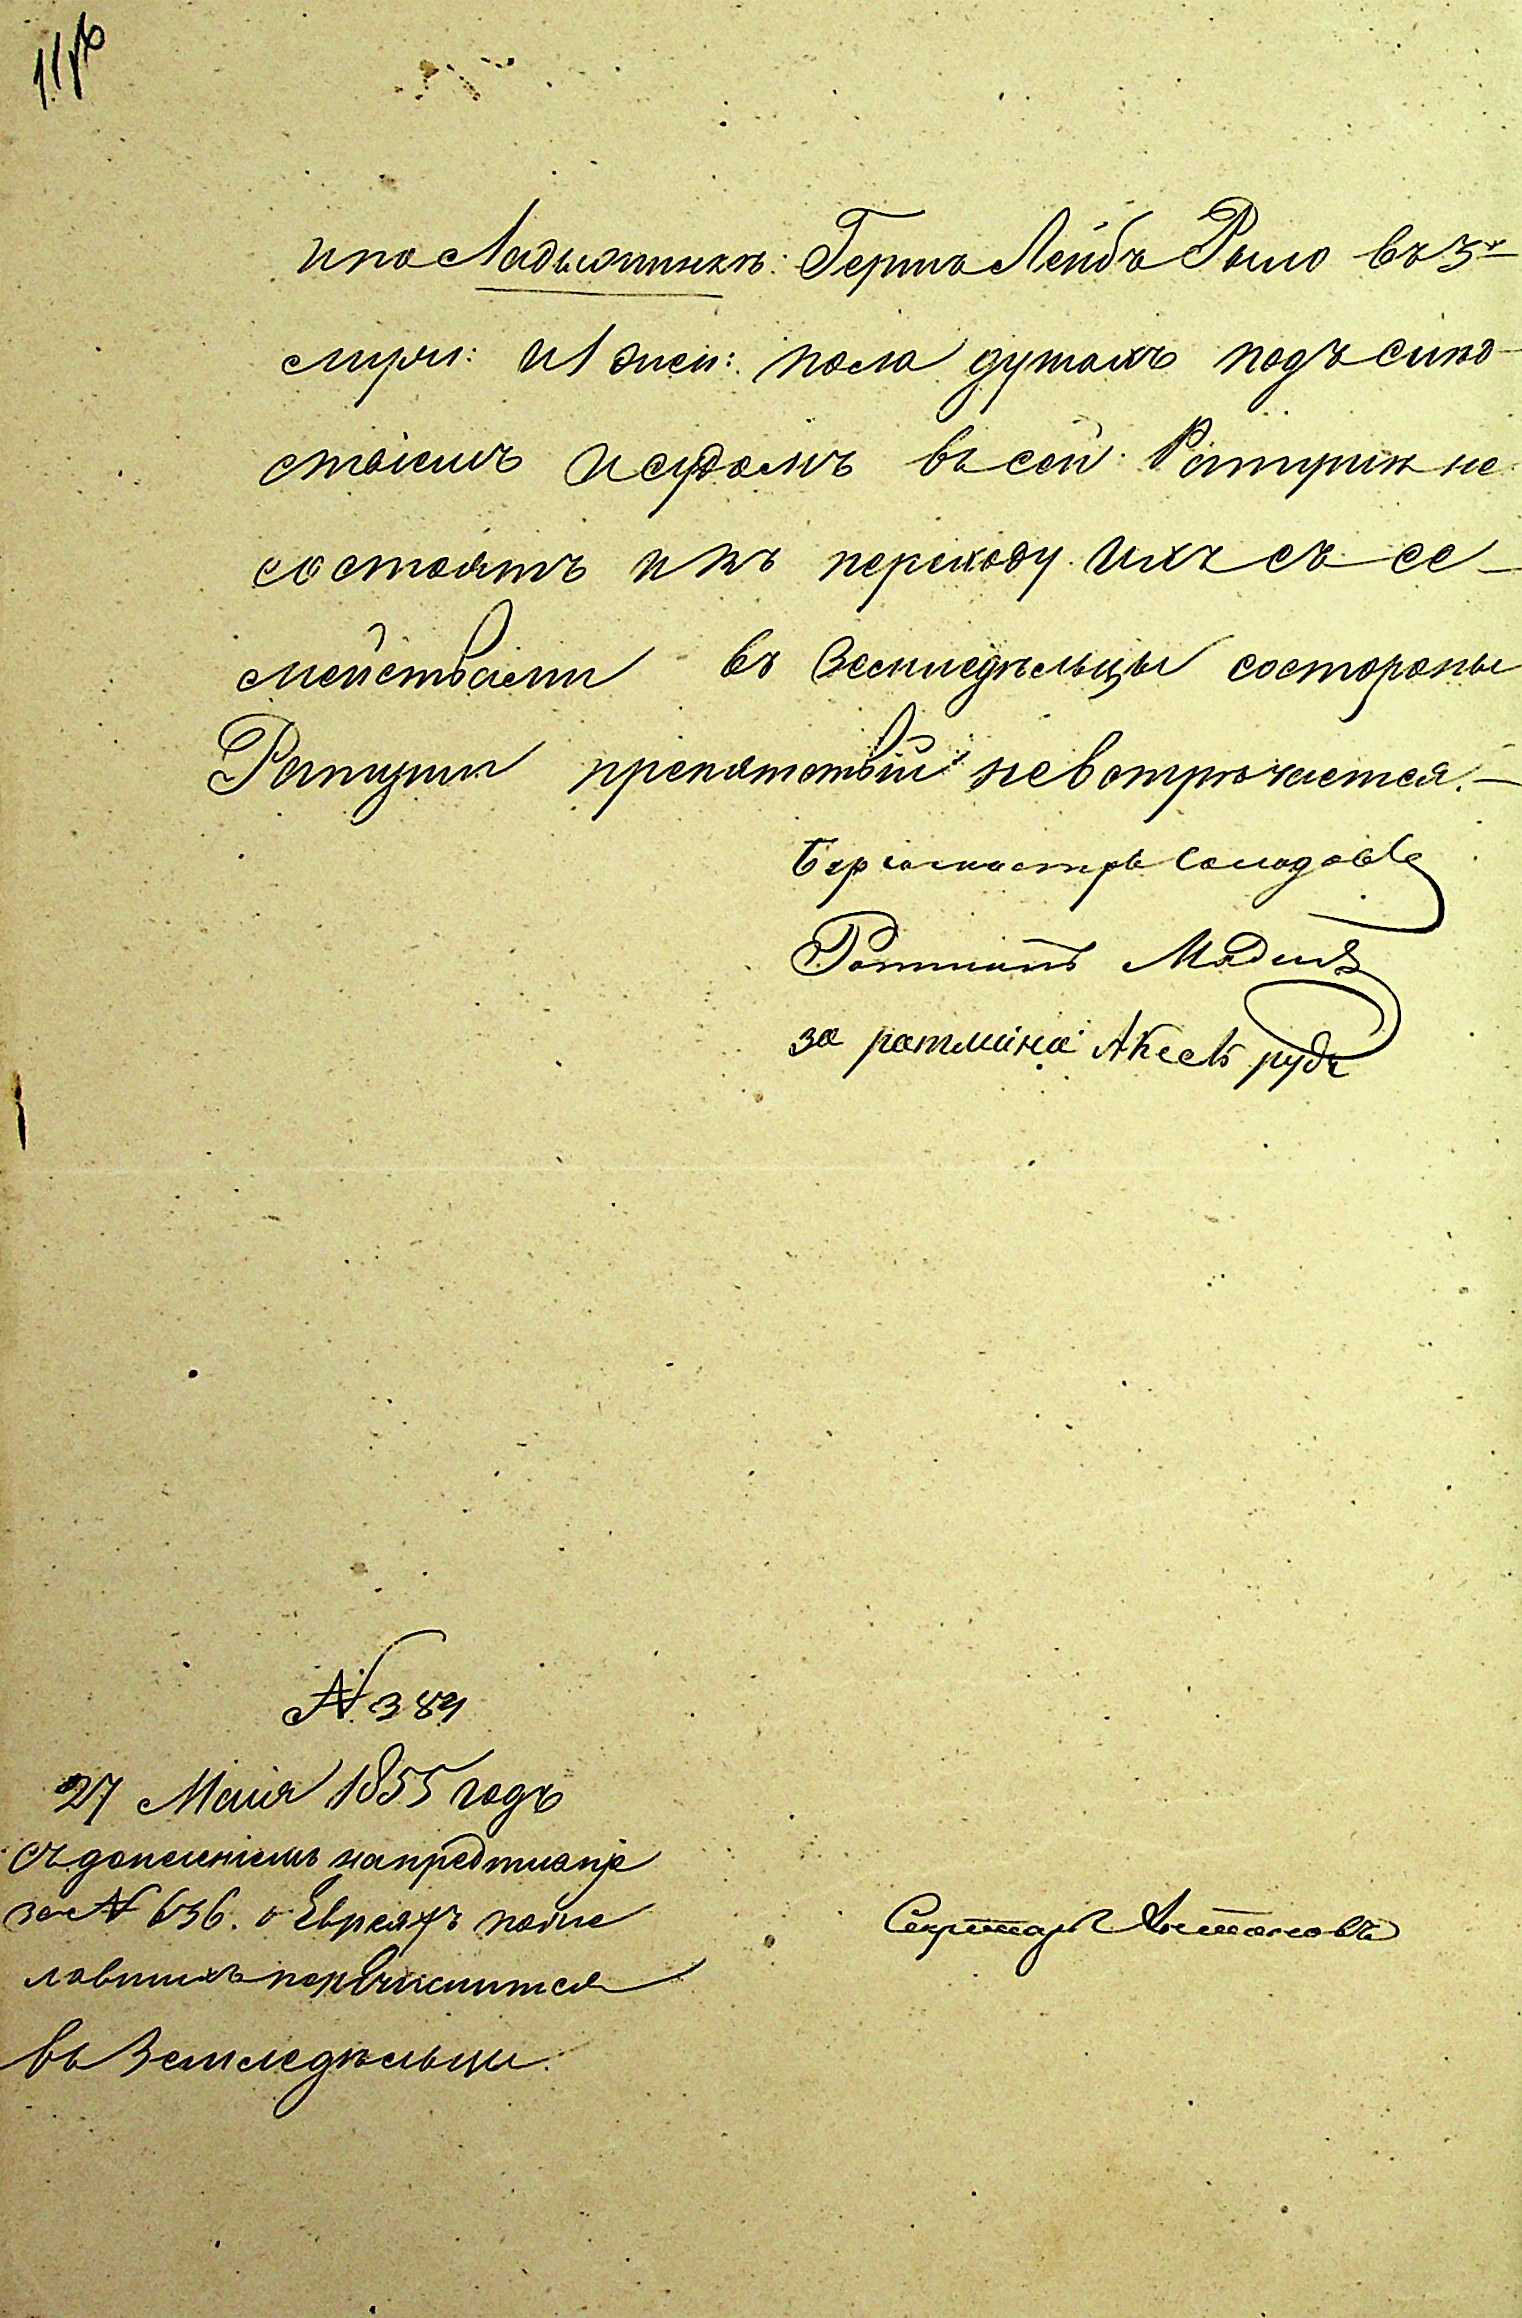 и по Ладыжинкѣ: Герша Лейбъ Рыло въ 3х
муж: и 1 жен: пола душахъ подъ слѣд
ствіемъ и судомъ въ сей Ратушѣ не
состоятъ и къ переходу ихъ съ се-
мействами въ Земледѣльцы состороны
Ратуши препятствій невстрѣчается.—
Бургомистръ Солодовъ
Ратманъ
за ратмана
№ 384
27 Маія 1855 годъ
Съ донесеніемъ на предписаніе
за № 636. о Евреяхъ поже
лавшихъ перечислится
въ Земледѣльцы.
Секретарь Антоновъ